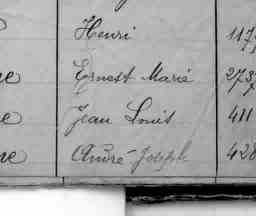 Henri 117
ne Ernest Marie 273
ne Jean Louis 411
ne André Joseph 428